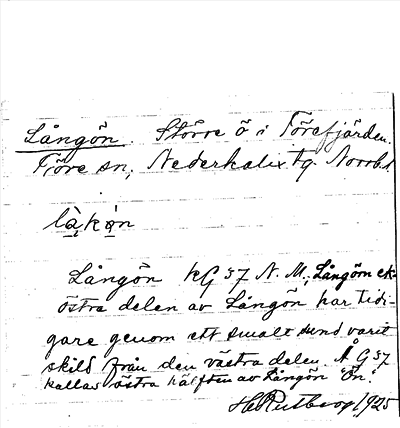 Långön. Större ö i Törefjärden.
Töre sn, Nederkalix tg. Norrb. l.
Långön KG 57 N. M.; Långön ek-
östra delen av Långön har tidi-
gare genom ett smalt sund varit
skild från den västra delen. Å G 57
kallas östra hälften av Långön "Ön".
1925